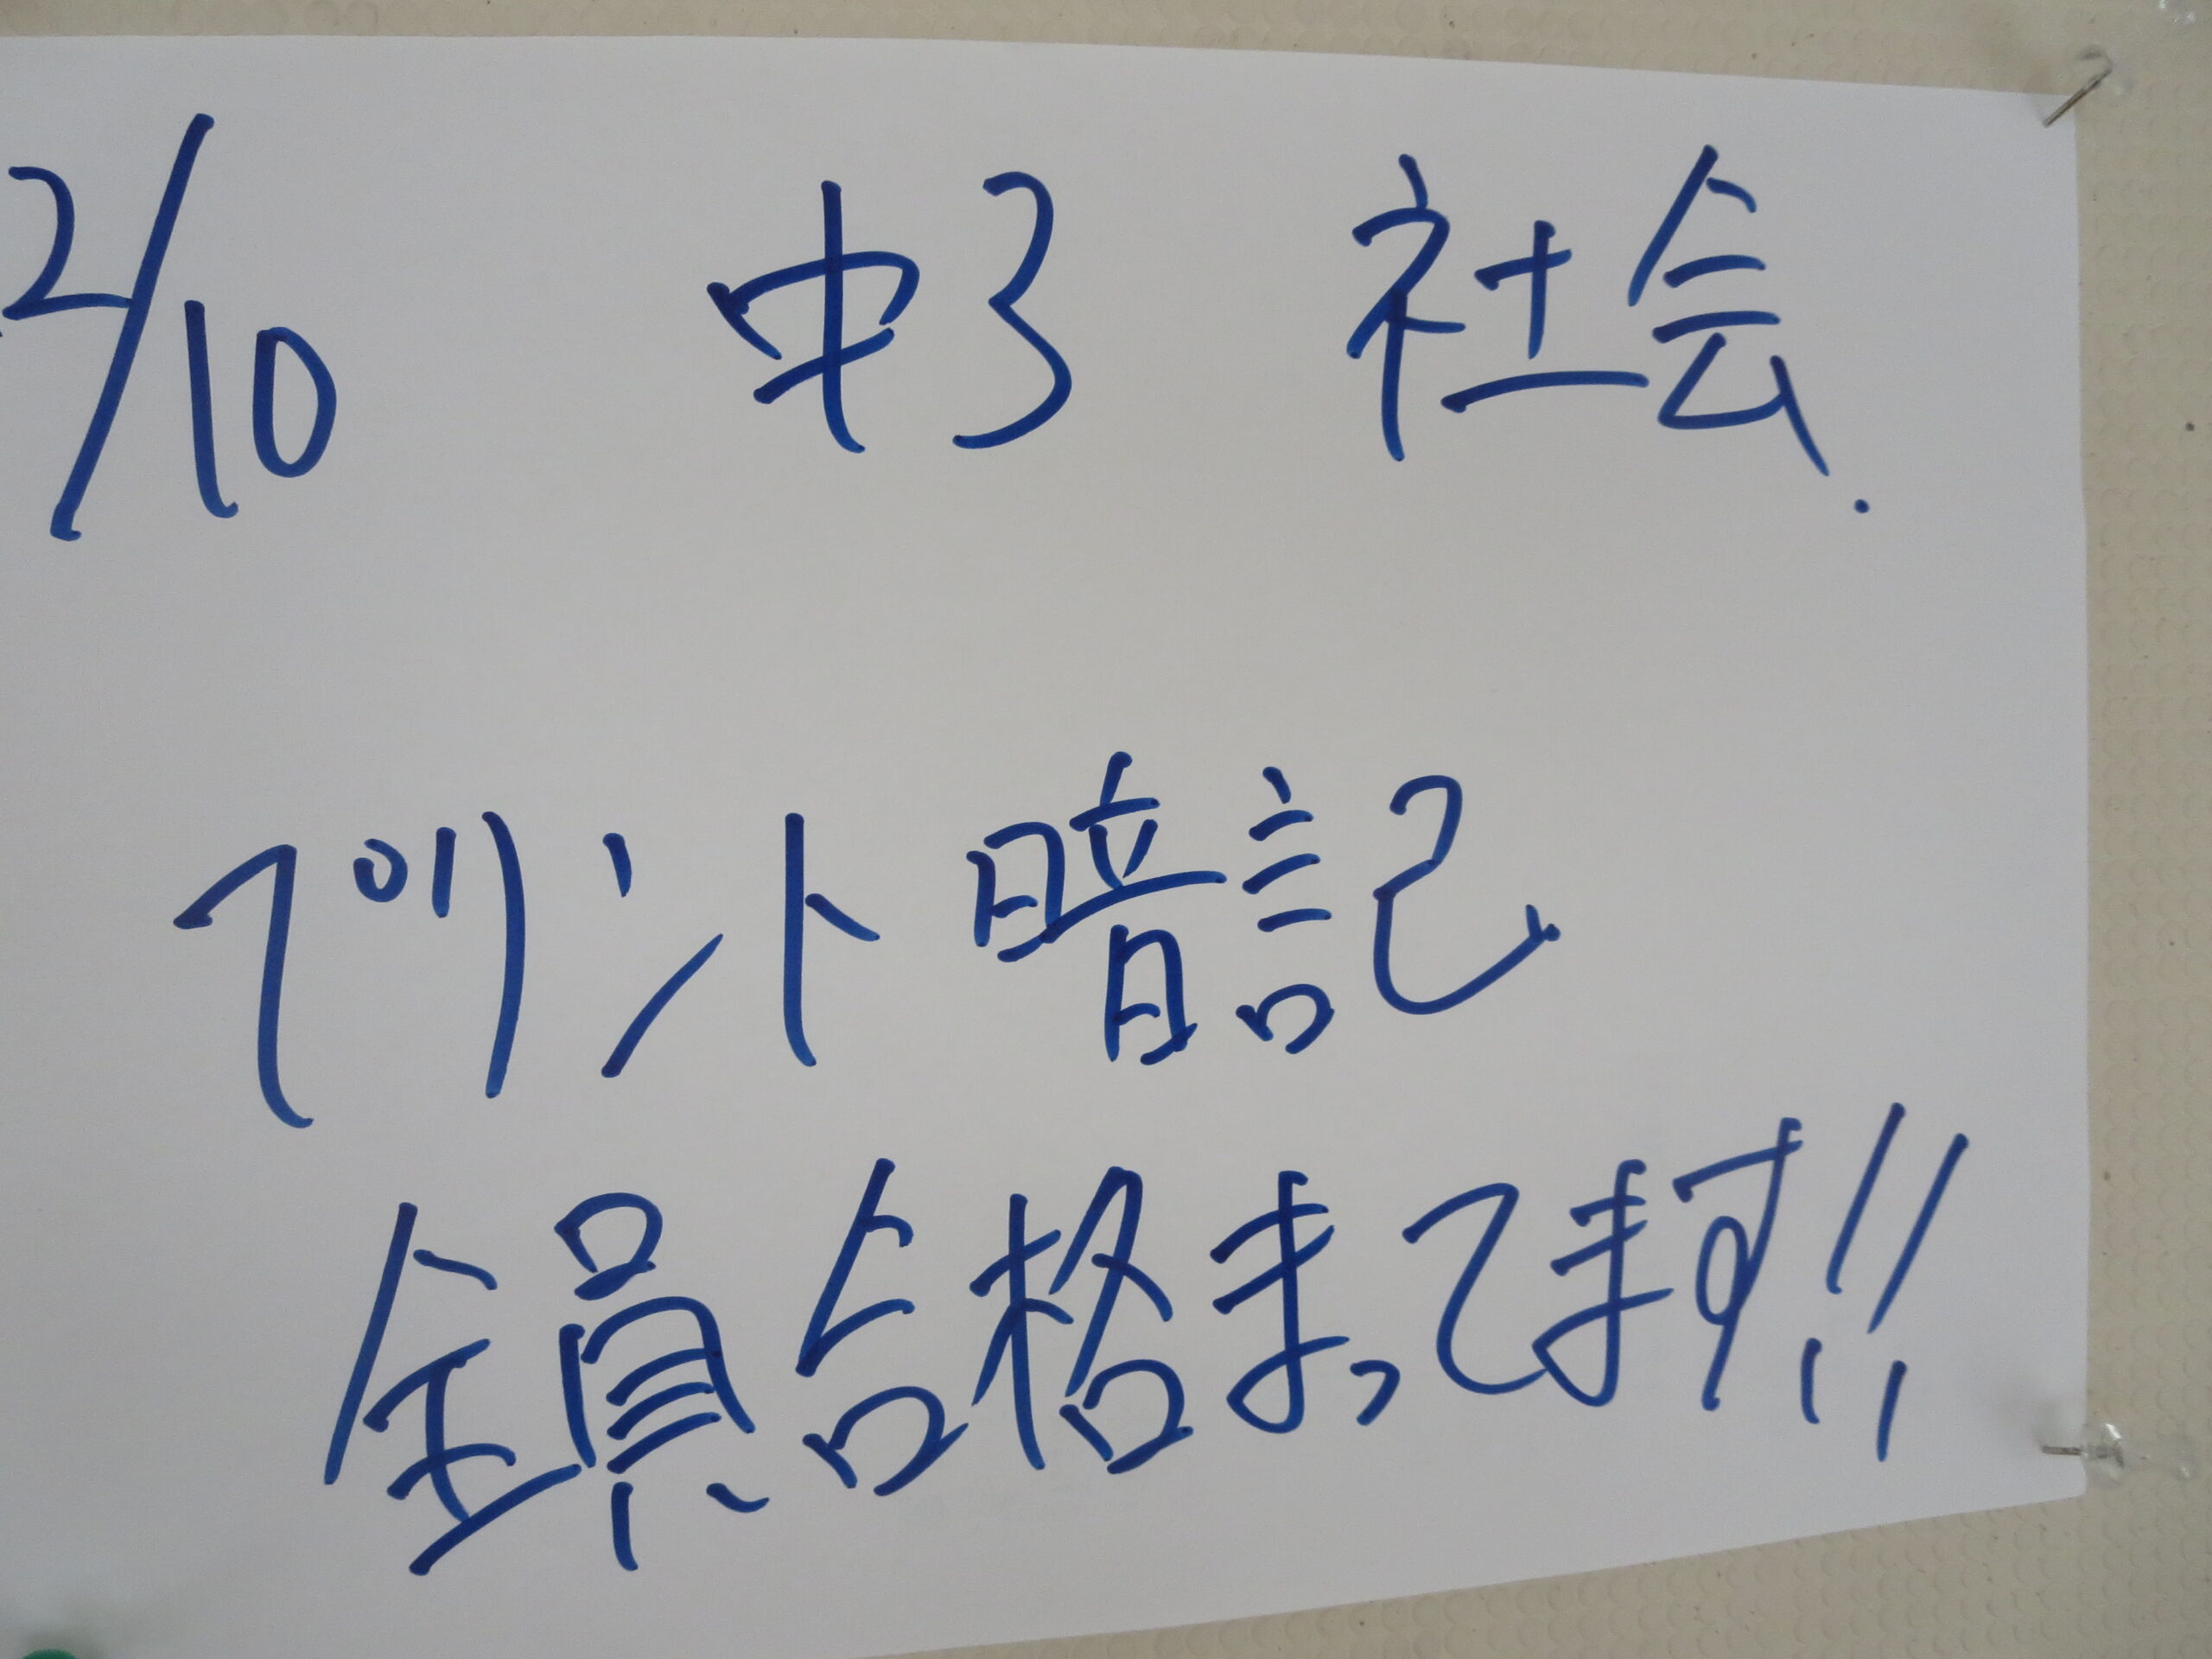 2/10 中3 社会.
プリント暗記
全員合格まってます!!